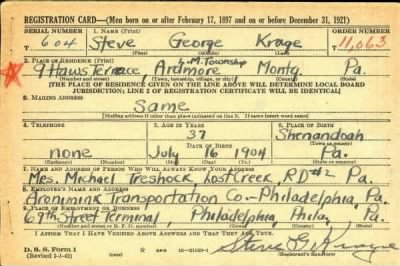 REGISTRATION CARD—(Men born on or after February 17, 1897 and on or before December 31, 1921)
SERIAL NUMBER 1. NAME (Print) ORDER NUMBER
604 Steve George Krage 11,063
(First) (Middle) (Last)
2. PLACE OF RESIDENCE (Print) L.M. Township
9 Haws Terrace, Ardmore Montg. Pa.
(Number and street) (Town, township, village, or city) (County) (State)
[THE PLACE OF RESIDENCE GIVEN ON THE LINE ABOVE WILL DETERMINE LOCAL BOARD
JURISDICTION; LINE 2 OF REGISTRATION CERTIFICATE WILL BE IDENTICAL]
3. MAILING ADDRESS
Same
[Mailing address if other than place indicated on line 2. If same insert word same]
4. TELEPHONE 5. AGE IN YEARS 6. PLACE OF BIRTH
37 Shenandoah
DATE OF BIRTH (Town or county)
none July 16 1904 Pa.
(Exchange) (Number) (Mo.) (Day) (Yr.) (State or country)
7. NAME AND ADDRESS OF PERSON WHO WILL ALWAYS KNOW YOUR ADDRESS
Mrs. Michael Treshock, Lost Creek, RD#2 Pa.
8. EMPLOYER'S NAME AND ADDRESS
Aronimink Transportation Co.- Philadelphia, Pa.
9. PLACE OF EMPLOYMENT OR BUSINESS
69th Street Terminal, Philadelphia, Phila, Pa.
(Number and street or R. F. D. number) (Town) (County) (State)
I AFFIRM THAT I HAVE VERIFIED ABOVE ANSWERS AND THAT THEY ARE TRUE.
D. S. S. Form 1
(Revised 1-1-42) (over) Steve G. Krage
(Registrant's signature)